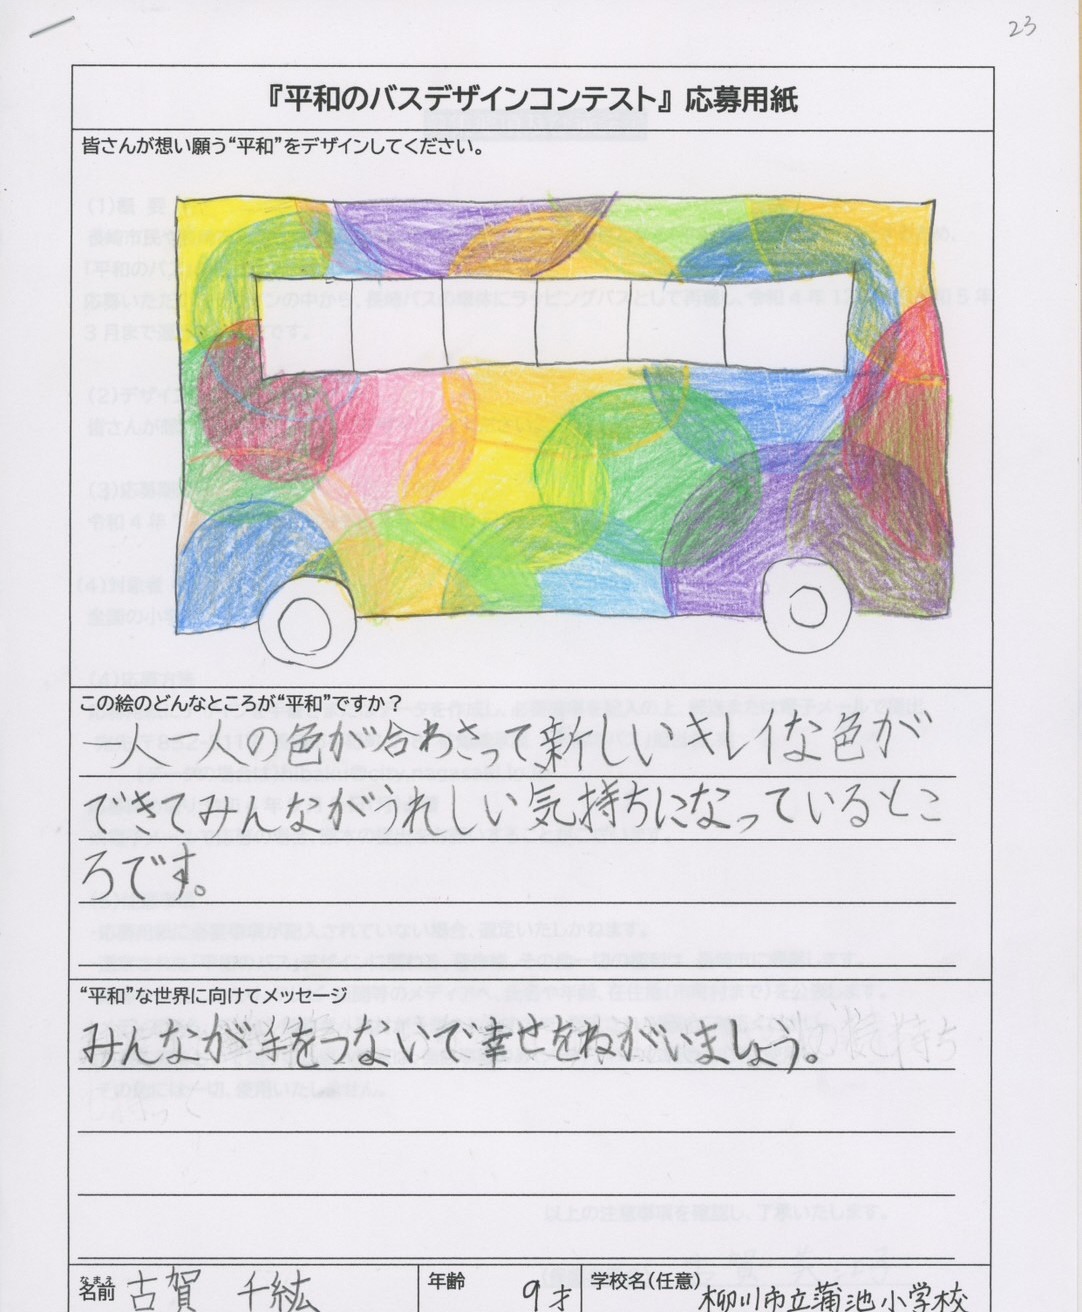 23
『平和のバスデザインコンテスト』応募用紙
皆さんが想い願う“平和”をデザインしてください。
この絵のどんなところが“平和”ですか？
一人一人の色が合わさって新しいキレイな色が
できてみんながうれしい気持ちになっているとこ
ろです。
“平和”な世界に向けてメッセージ
みんなが手をつないで幸せをねがいましょう。
なまえ
名前 古賀 千紘
年齢 9才
学校名(任意) 柳川市立蒲池小学校